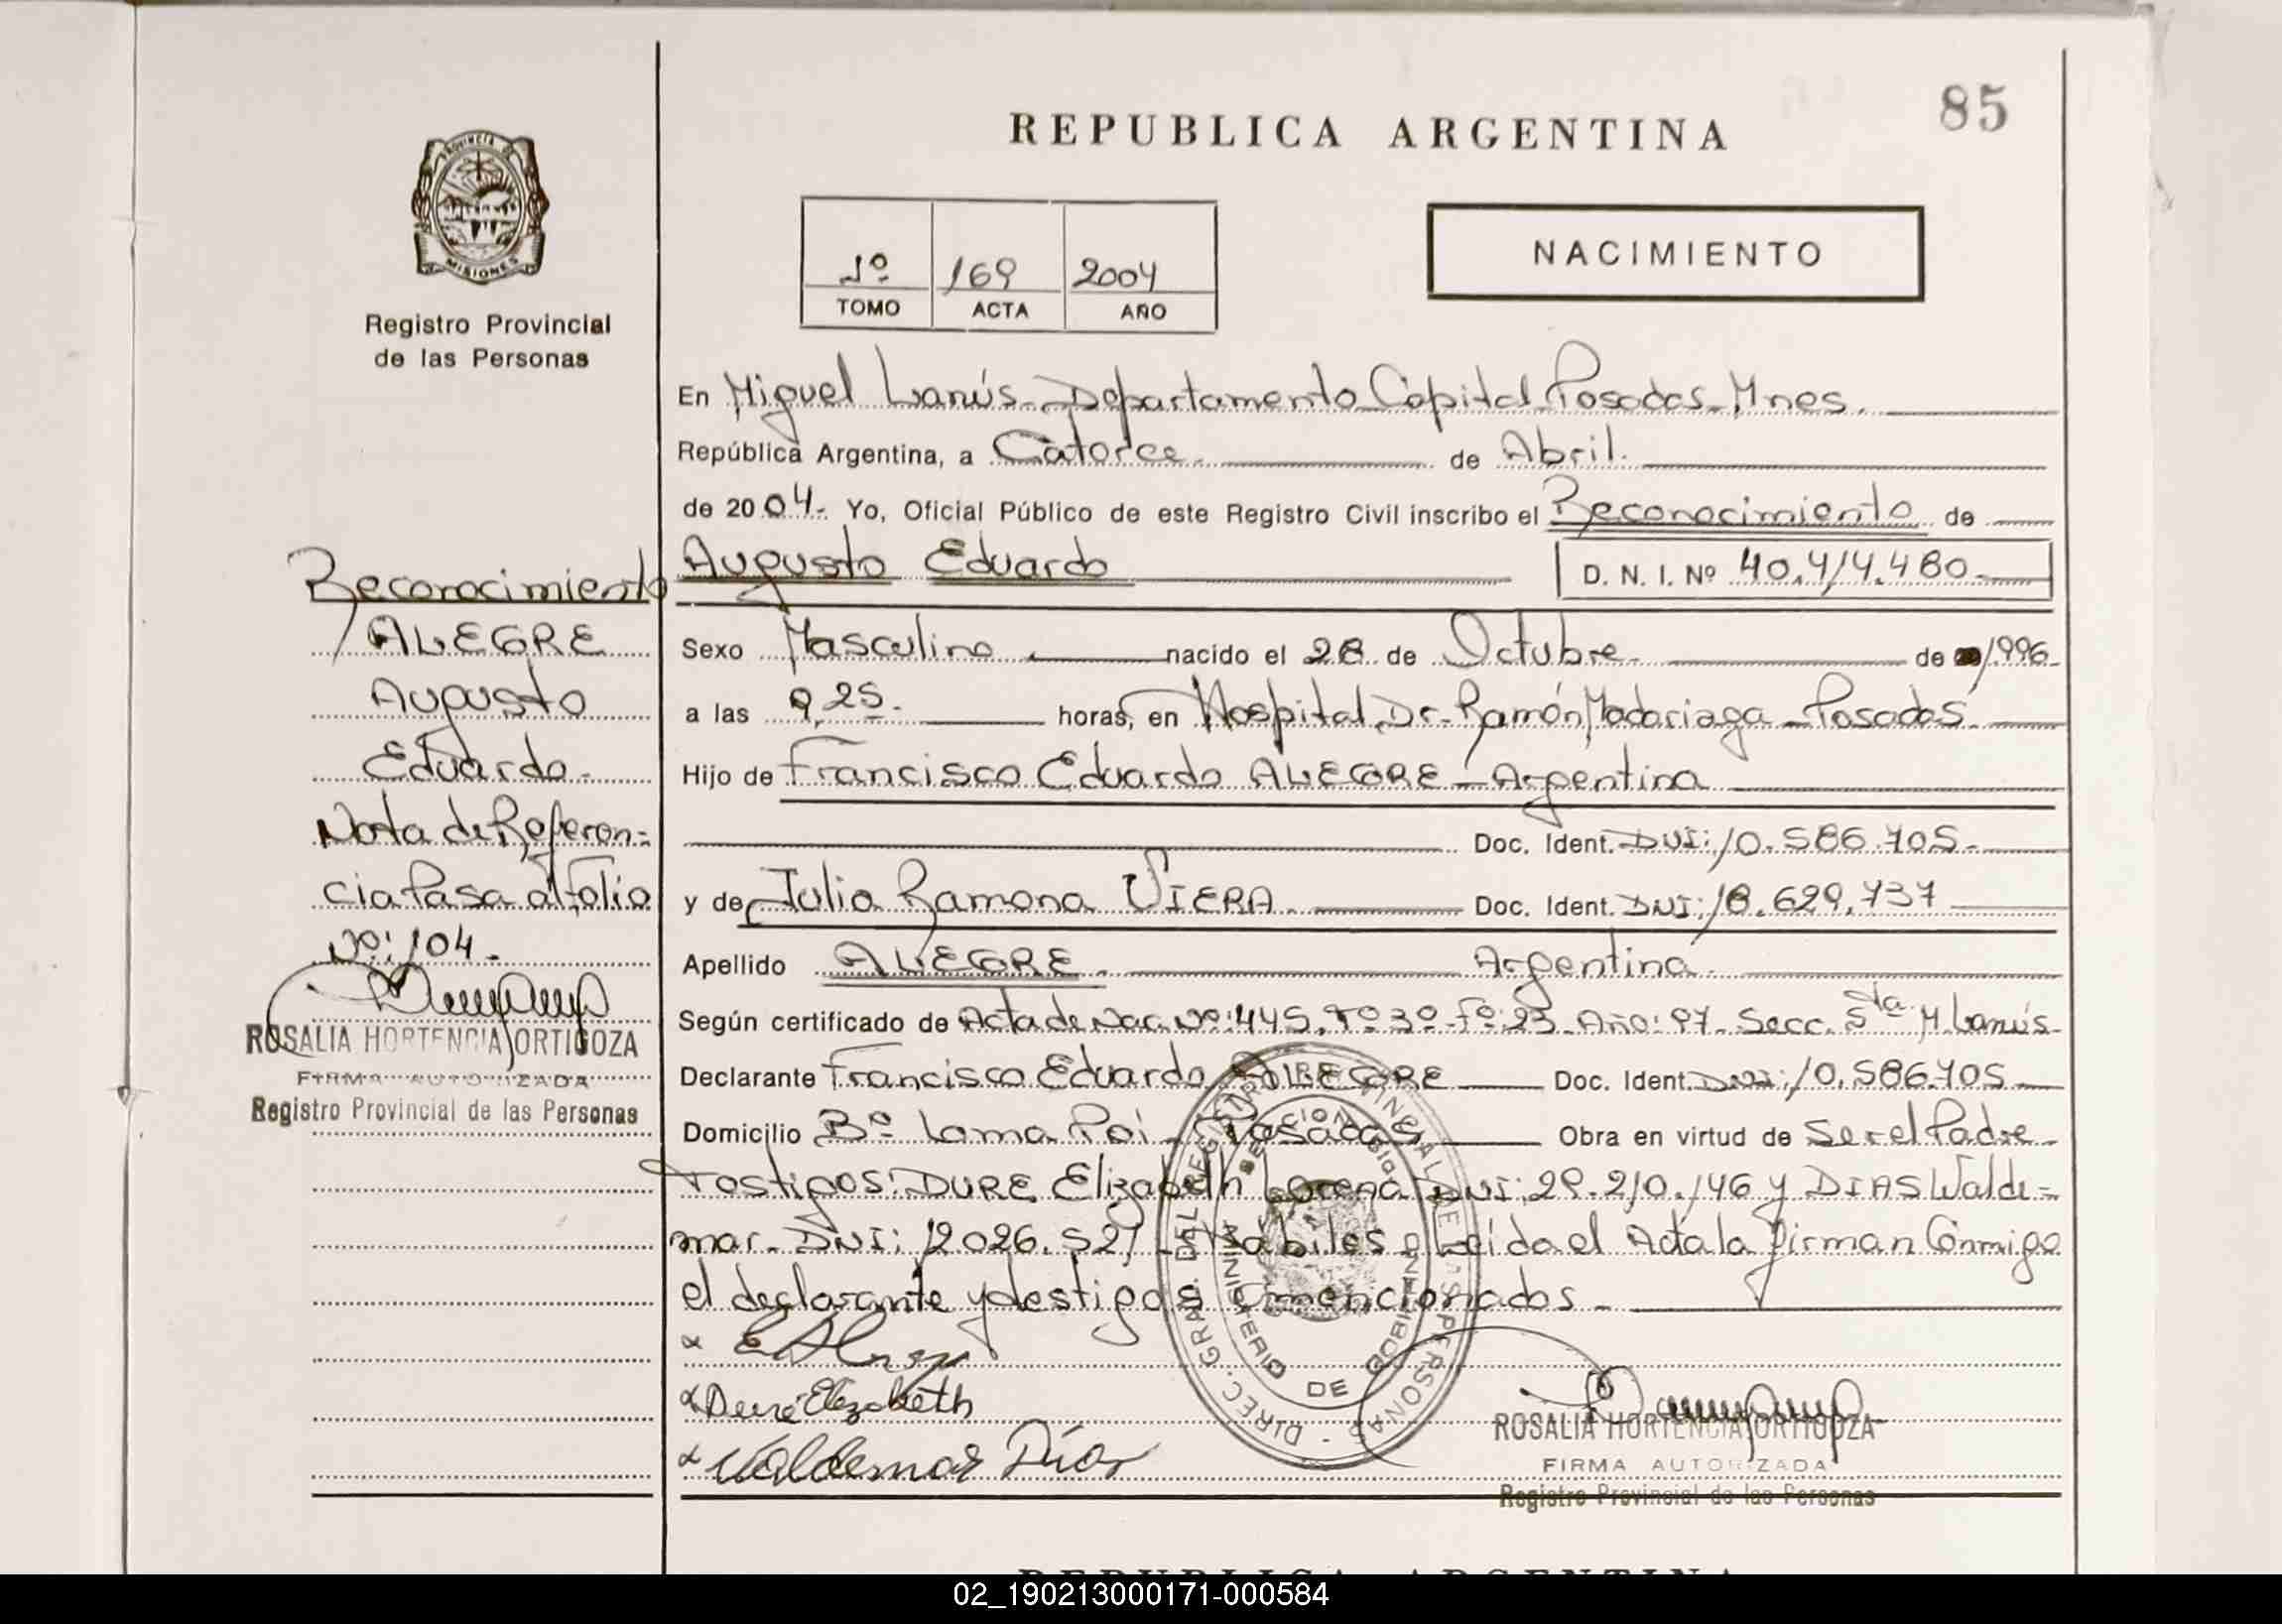 85
REPUBLICA ARGENTINA
PROVINCIA DE
MISIONES
Registro Provincial
de las Personas
1º 169 2004
TOMO ACTA AÑO
NACIMIENTO
En Miguel Lanús - Departamento Capital Posadas - Mnes.
República Argentina, a Catorce. de Abril.
de 2004- Yo, Oficial Público de este Registro Civil inscribo el Reconocimiento de
Augusto Eduardo D. N. I. Nº 40.414.480
Sexo Masculino nacido el 28 de Octubre de 1996
a las 9,25. horas, en Hospital Dr. Ramón Madariaga - Posadas
Hijo de Francisco Eduardo ALEGRE - Argentina
Doc. Ident. DNI: 10.586.705-
y de Julia Ramona VIERA. Doc. Ident. DNI: 18.629.737
Apellido ALEGRE. Argentina.
Según certificado de Acta de Nac. Nº: 445. Tº 3º Fº: 23. Año: 97. Secc. 5ta M Lanús-
Declarante Francisco Eduardo ALEGRE Doc. Ident. DNI: 10.586.705
Domicilio Bº Loma Poi - Posadas Obra en virtud de Ser el Padre
Testigos: DURE Elizabeth Lorena DNI: 29.210.146 y DIAS Walde-
mar. DNI: 12.026.527 - Hábiles Leída el Acta la firman Conmigo
el declarante y testigos mencionados -
Dure Elizabeth
Waldemar Días
Reconocimiento
ALEGRE
Augusto
Eduardo
Nota de Referen-
cia Pasa al Folio
Nº: 104.
ROSALIA HORTENCIA ORTIGOZA
FIRMA AUTORIZADA
Registro Provincial de las Personas
DIREC. GRAL. DEL REGISTRO PROVINCIAL DE LAS PERSONAS
MINISTERIO DE GOBIERNO
ROSALIA HORTENCIA ORTIGOZA
FIRMA AUTORIZADA
Registro Provincial de las Personas
REPUBLICA ARGENTINA
02_190213000171-000584